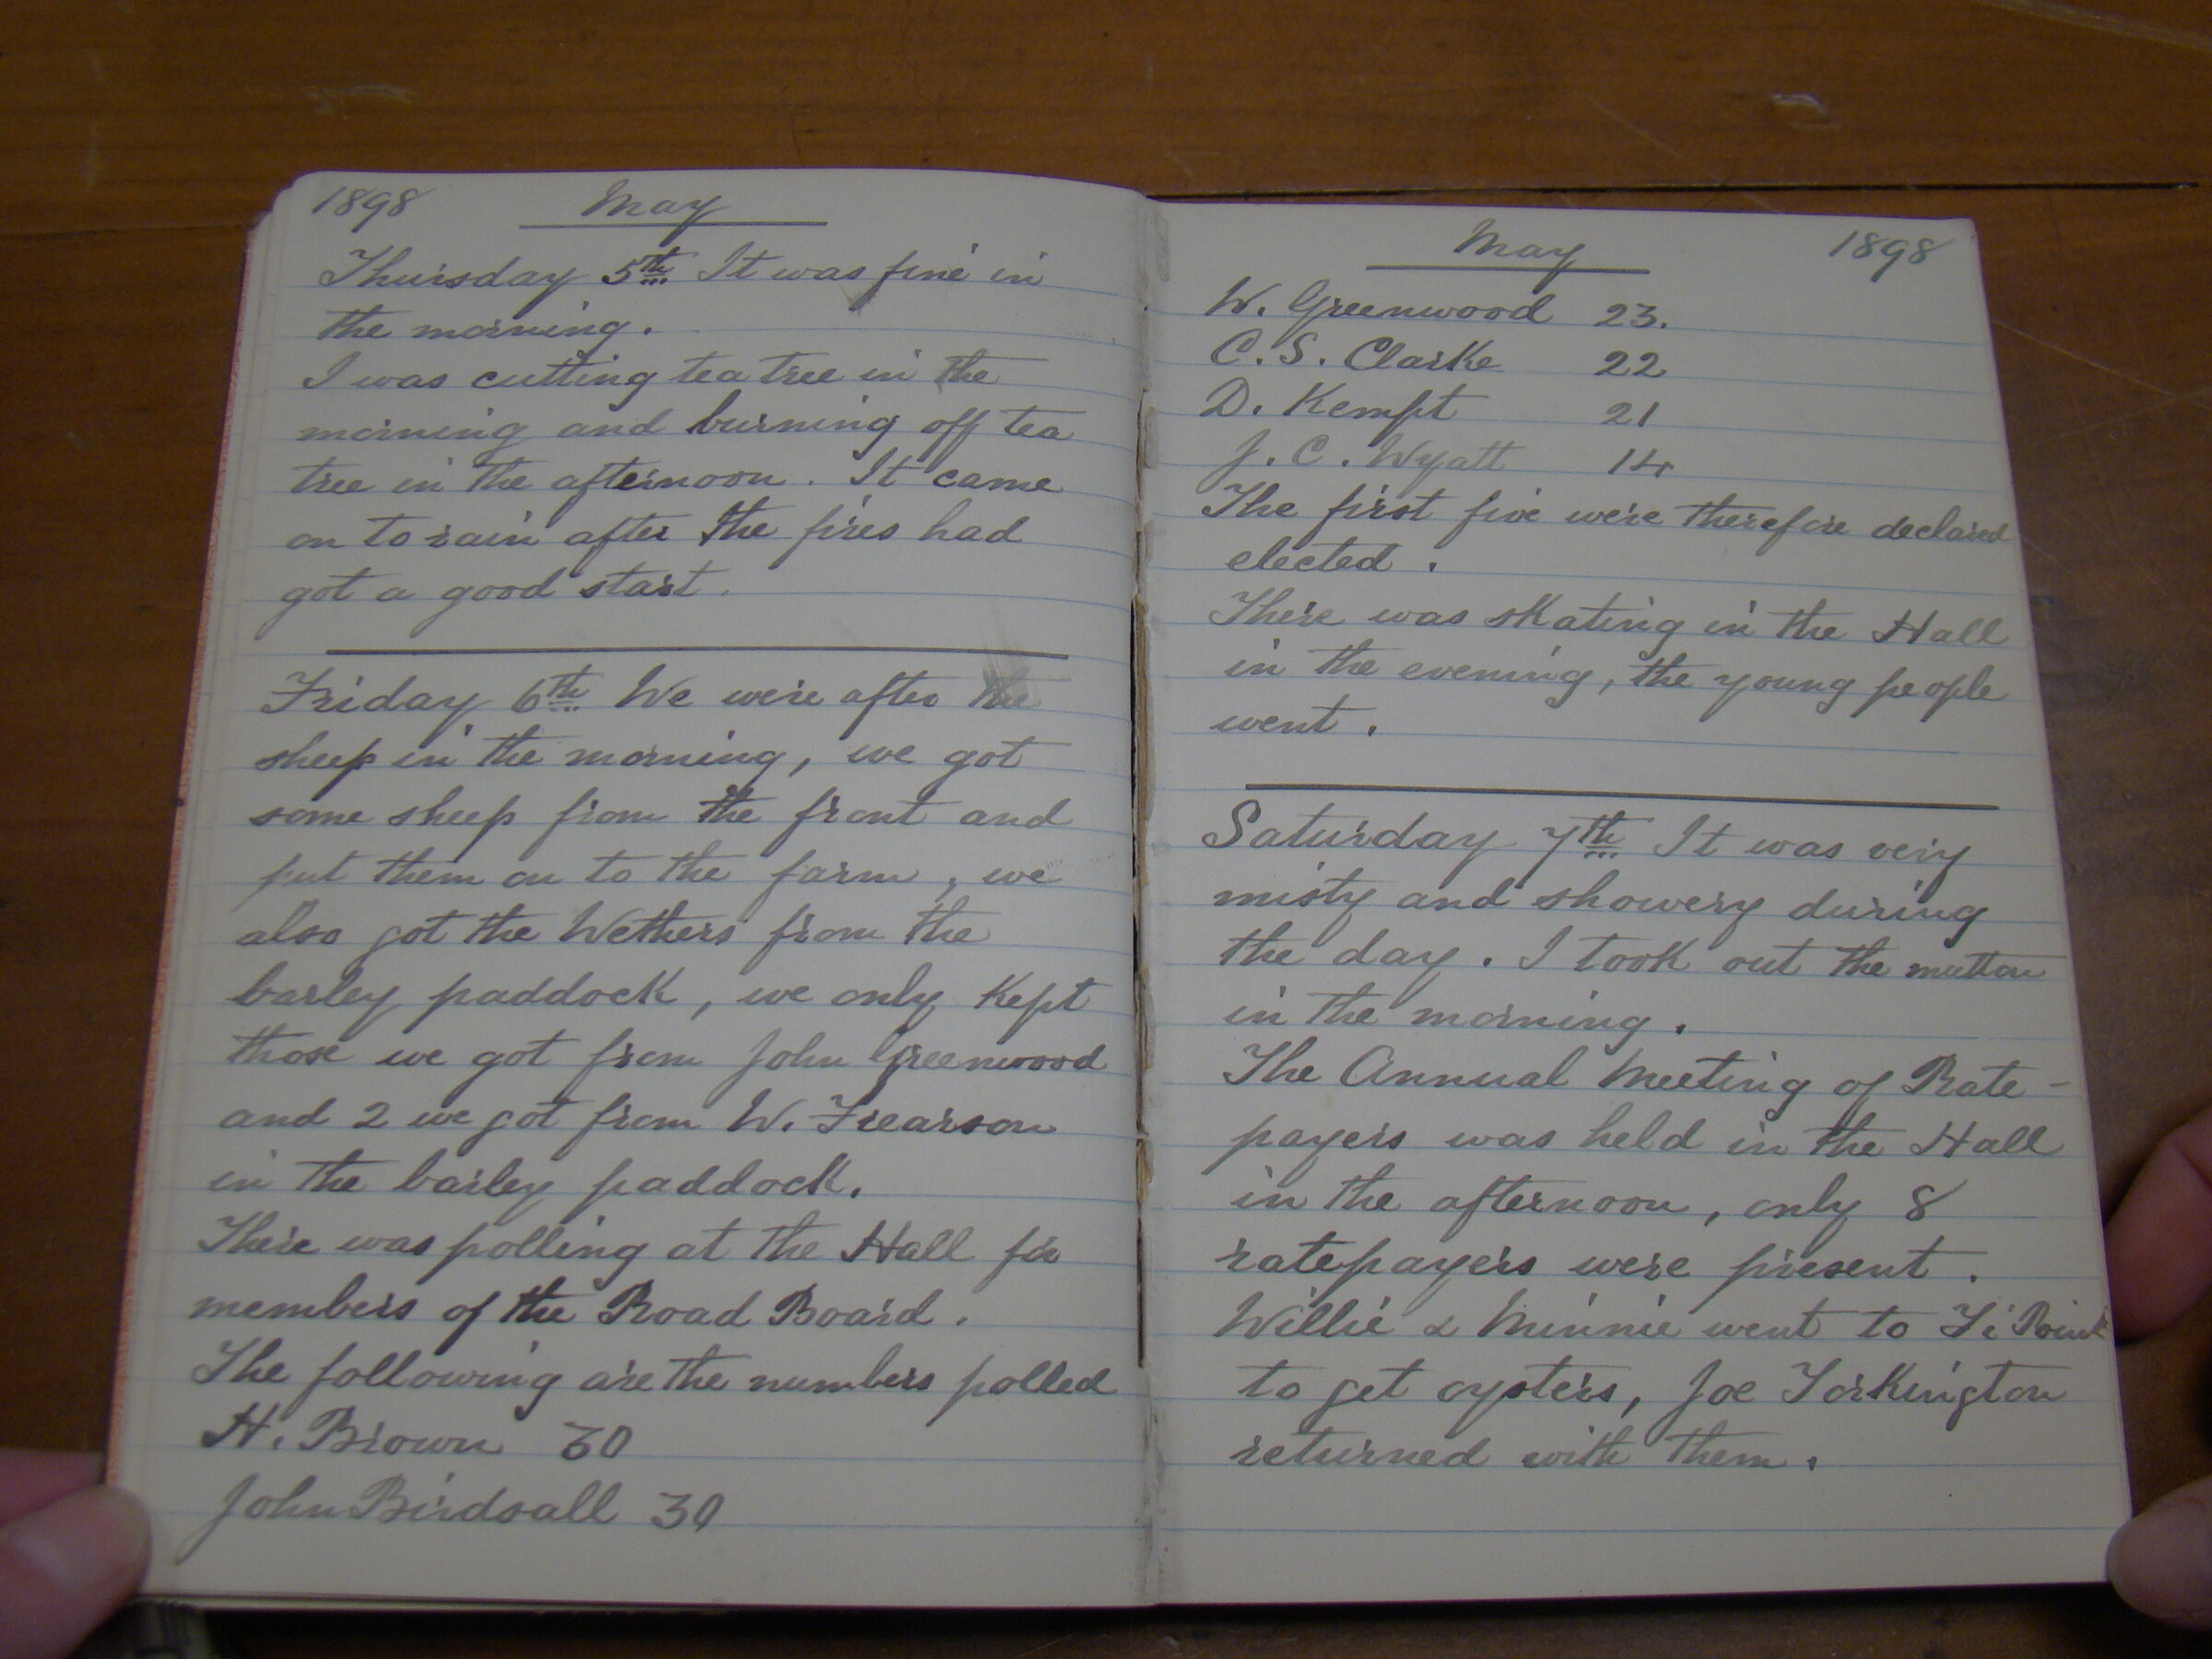 1898 May
Thursday 5th It was fine in
the morning.
I was cutting tea tree in the
morning and burning off tea
tree in the afternoon. It came
on to rain after the fires had
got a good start.
Friday 6th We were after the
sheep in the morning, we got
some sheep from the front and
put them on to the farm, we
also got the Wethers from the
barley paddock, we only kept
those we got from John Greenwood
and 2 we got from W. Frearson
in the barley paddock.
There was polling at the Hall for
members of the Road Board.
The following are the numbers polled
H. Brown 30
John Birdsall 30
May 1898
W. Greenwood 23.
C. S. Clarke 22
D. Kempt 21
J. C. Wyatt 14
The first five were therefore declared
elected.
There was skating in the Hall
in the evening, the young people
went.
Saturday 7th It was very
misty and showery during
the day. I took out the mutton
in the morning.
The Annual Meeting of Rate-
payers was held in the Hall
in the afternoon, only 8
ratepayers were present.
Willie & Minnie went to Ti Point
to get oysters, Joe Torkington
returned with them.